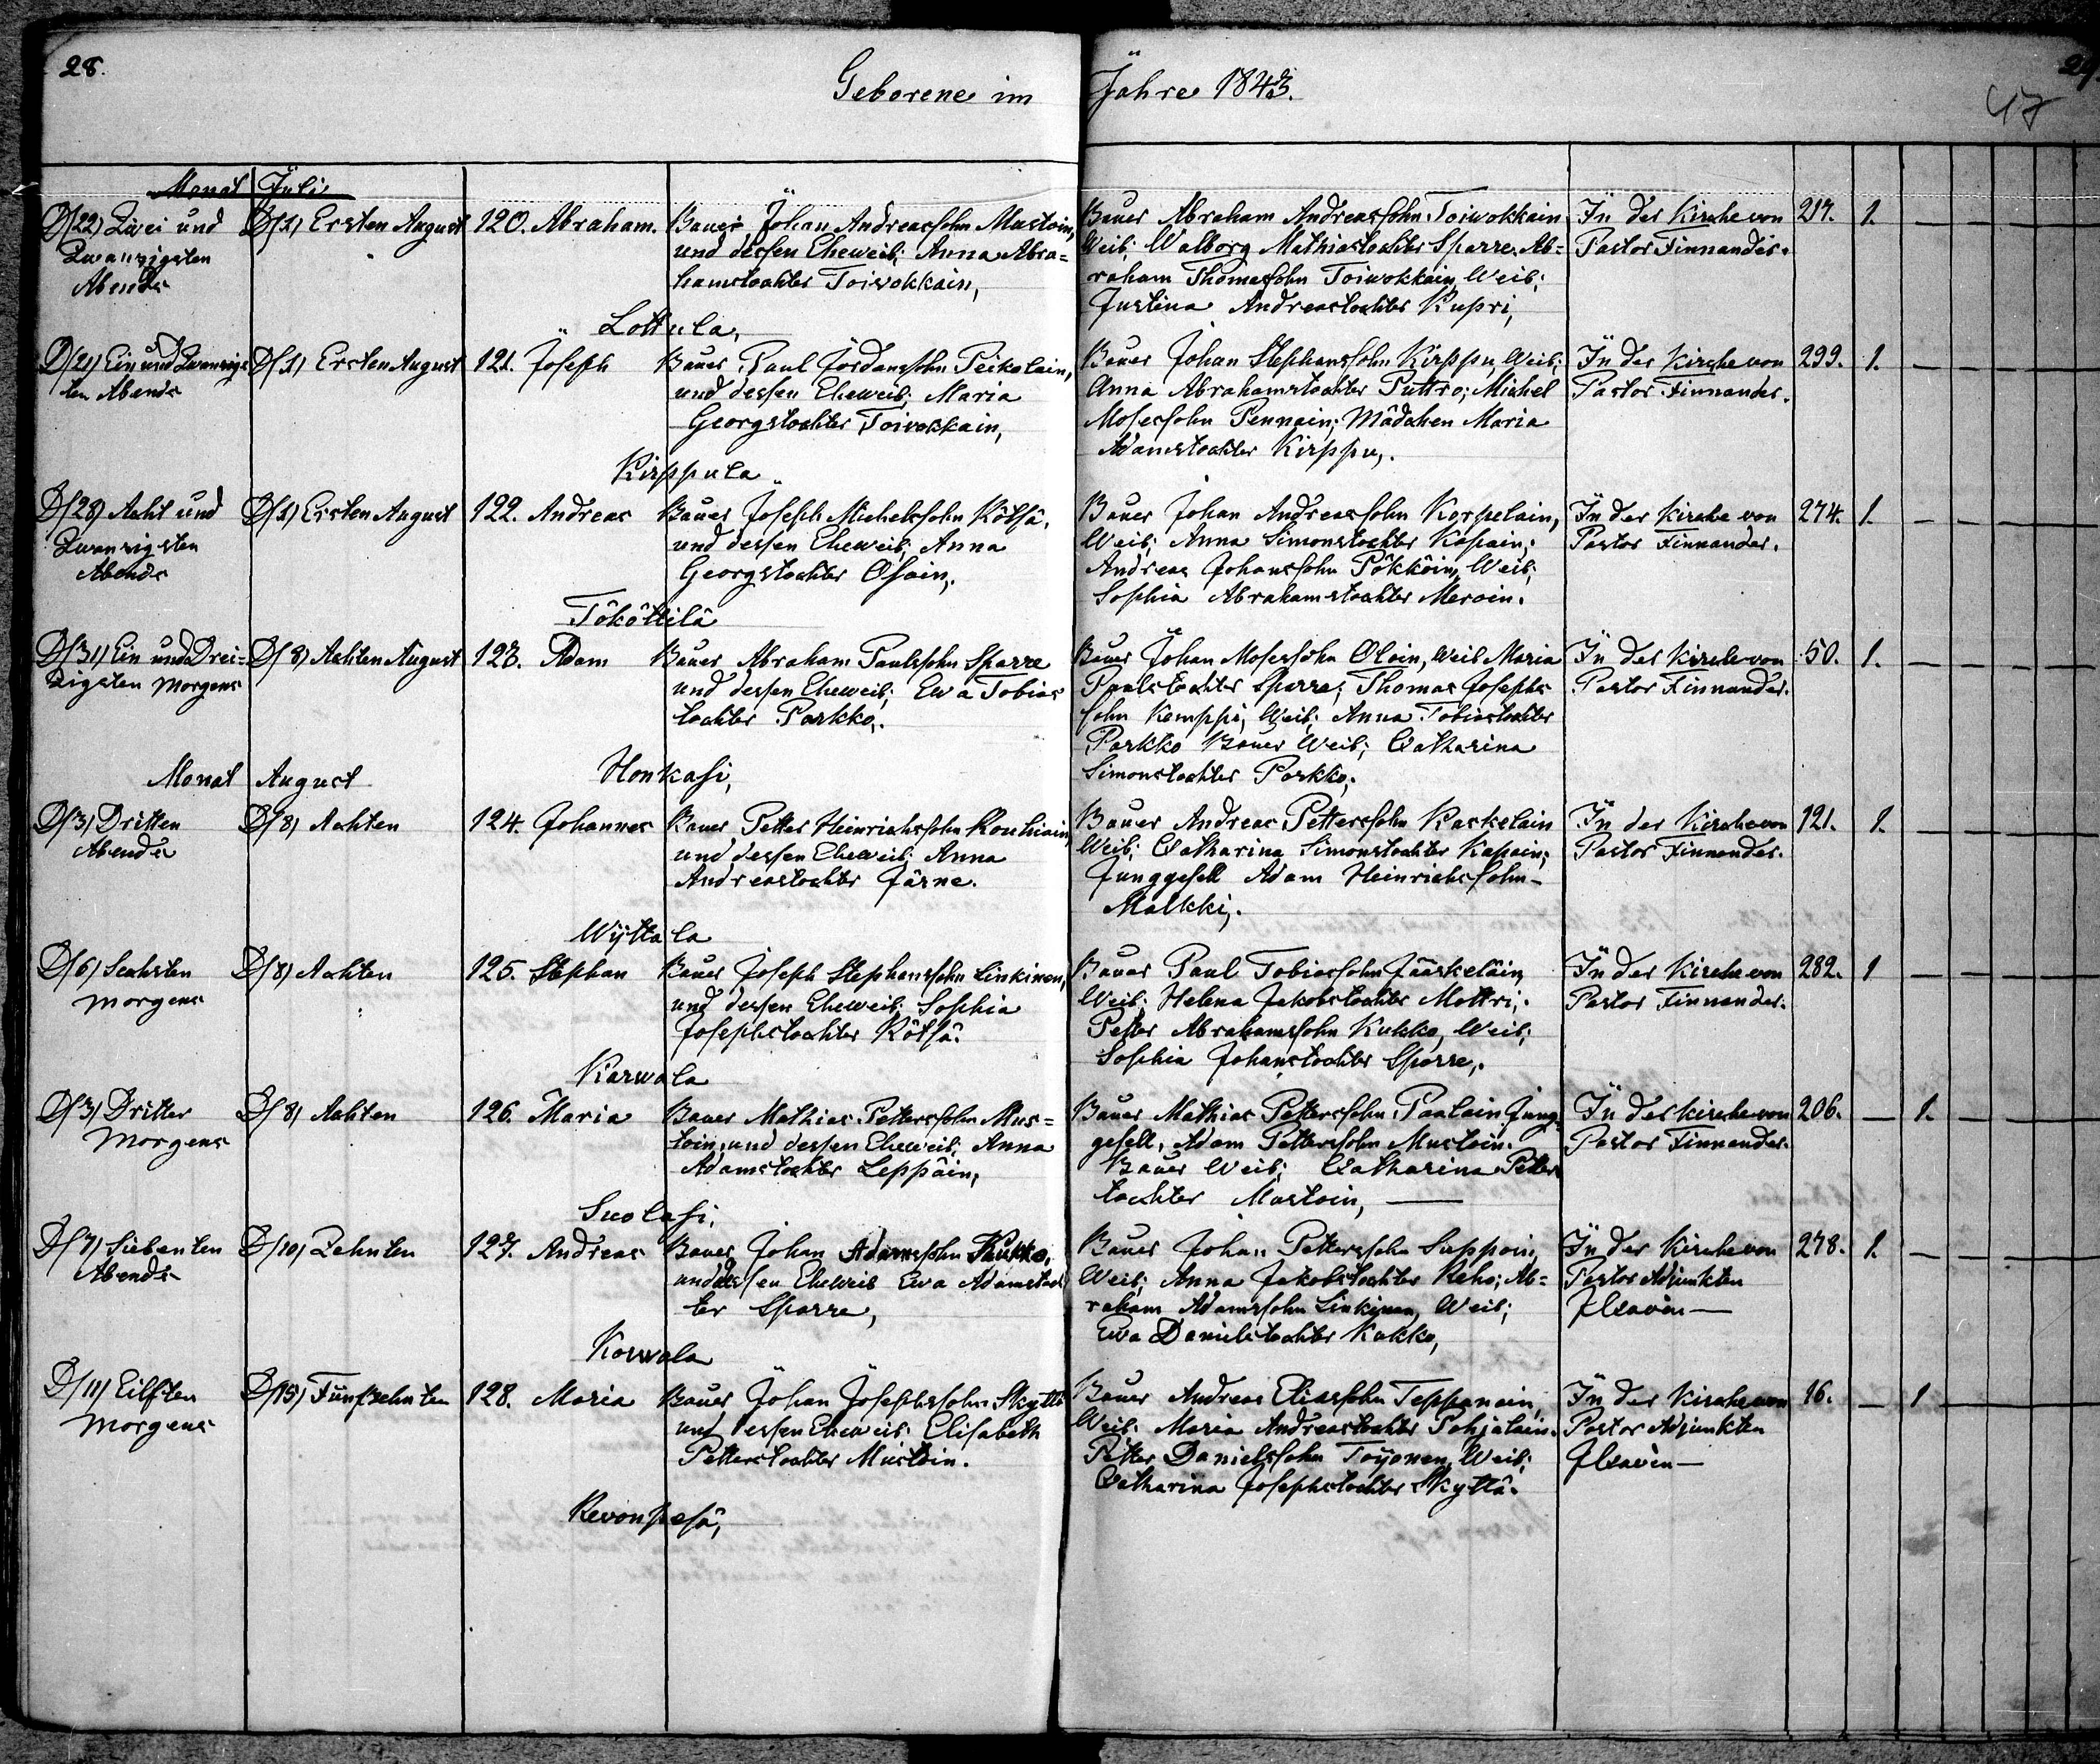 28.
Geborene im Jahre 1843.
29
47
Monat Juli
D/22) Zwei und
Zwanzigsten
Abends
D/1) Ersten August
120. Abraham.
Bauer Johan Andreassohn Mustoin,
und dessen Eheweib; Anna Abra=
hamstochter Toiwokkain,
Lottula,
Bauer Abraham Andreassohn Toiwokkain
Weib; Walborg Mathiastochter Sparre. Ab=
raham Thomassohn Toiwokkain, Weib;
Justina Andreastochter Kupri,
In der Kirche von
Pastor Finnander.
217. 1.
D/21) Ein und Zwanzigs
ten Abends
D/1) Ersten August
121. Joseph
Bauer Paul Jordanssohn Peikolain,
und dessen Eheweib; Maria
Georgstochter Toivokkain,
Kirppula
Bauer Johan Stephanssohn Kirppu, Weib;
Anna Abrahamstochter Puttro; Michel
Mosessohn Pennain; Mädchen Maria
Adamstochter Kirppu,.
In der Kirche von
Pastor Finnander.
299. 1. — — — —
D/28) Acht und
Zwanzigsten
Abends
D/1) Ersten August
122. Andreas
Bauer Joseph Michelssohn Rötsä,
und dessen Eheweib; Anna
Georgstochter Osain,.
Tököttilä
Bauer Johan Andreassohn Korpelain,
Weib; Anna Simonstochter Kapain;
Andreas Johanssohn Pökköin, Weib;
Sophia Abrahamstochter Meroin.
In der Kirche von
Pastor Finnander.
274. 1. — — — —
D/31) Ein und Drei=
zigsten Morgens
D/8) Achten August
123. Adam
Bauer Abraham Paulssohn Sparre
und dessen Eheweib; Ewa Tobias
tochter Parkko,.
Honkasi,
Bauer Johan Mosessohn Oloin, Weib Maria
Paulstochter Sparre; Thomas Josephs
sohn Kemppi, Weib; Anna Tobiastochter
Parkko Bauer Weib; Catharina
Simonstochter Parkko,.
In der Kirche von
Pastor Finnander.
50. 1. — — — —
Monat August
D/3) Dritten
Abends
D/8) Achten
124. Johannes
Bauer Petter Heinrichssohn Rouhiain,
und dessen Eheweib; Anna
Andreastochter Järne.
Wÿttala
Bauer Andreas Petterssohn Kaskelain
Weib; Catharina Simonstochter Kapain;
Junggesell Adam Heinrichssohn
Malkki,.
In der Kirche von
Pastor Finnander.
121. 1. — — — —
D/6) Sechsten
Morgens
D/8) Achten
125. Stephan
Bauer Joseph Stephanssohn Linkinen,
und dessen Eheweib; Sophia
Josephstochter Rötsä.
Karwala
Bauer Paul Tobiassohn Jääskeläin
Weib; Helena Jakobstochter Mottri,.
Petter Abrahamssohn Kukko, Weib;
Sophia Johanstochter Sparre,.
In der Kirche von
Pastor Finnander.
282. 1 — — — —
D/3) Dritter
Morgens
D/8) Achten
126. Maria
Bauer Mathias Petterssohn Mus=
toin, und dessen Eheweib; Anna
Adamstochter Leppäin,
Suolasi,
Bauer Mathias Petterssohn Paalain Jung=
gesell, Adam Petterssohn Mustoin.
Bauer Weib; Catharina Petters
tochter Mustoin, —
In der Kirche von
Pastor Finnander.
206. — 1. — — —
D/7) Siebenten
Abends
D/10) Zehnten
127. Andreas
Bauer Johan Adamssohn Kukko,
und dessen Eheweib Ewa Adamstoch
ter Sparre,
Korwala
Bauer Johan Petterssohn Suppoin,
Weib; Anna Jakobstochter Reho; Ab=
raham Adamssohn Linkinen, Weib;
Ewa Danielstochter Kukko,
In der Kirche von
Pastor Adjunkten
278. 1. — — — —
D/11) Eilften
Morgens
D/15) Fünfzehnten
128. Maria
Bauer Johan Josephssohn Skyttä
und dessen Eheweib; Elisabeth
Petterstochter Mustoin.
Revonpesä,
Bauer Andreas Eliassohn Teppanain,
Weib; Maria Andreastochter Pohjalain.
Petter Danielssohn Toijonen, Weib;
Catharina Josephstochter Skyttä.
In der Kirche von
Pastor Adjunkten
16. — 1 — — —